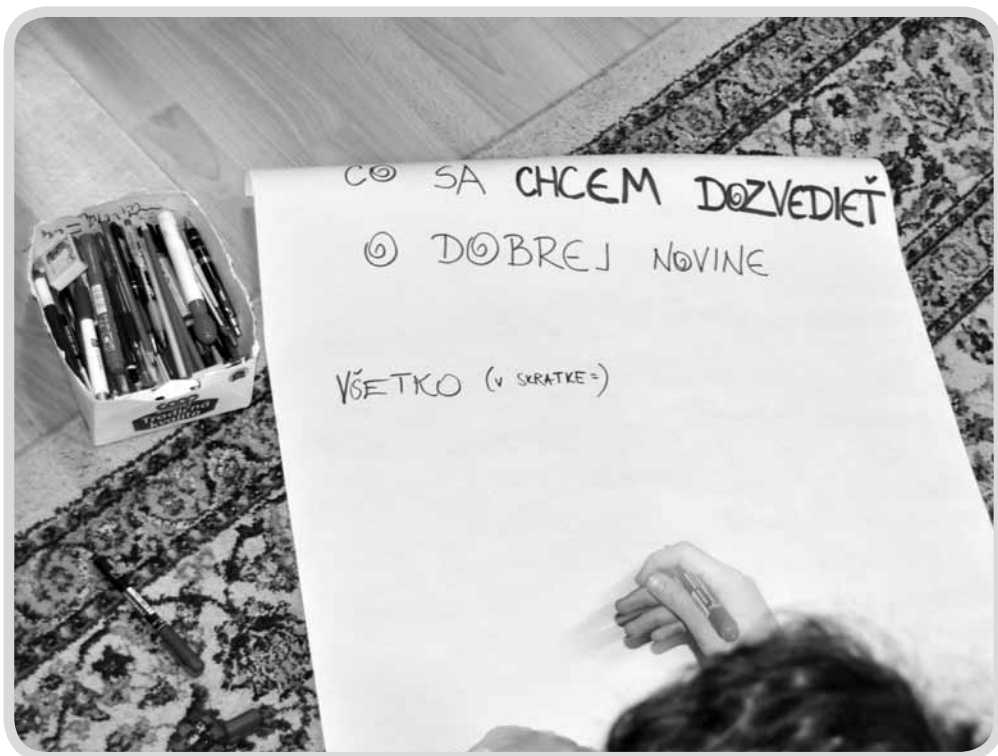 CO SA CHCEM DOZVEDIEŤ
O DOBREJ NOVINE
VŠETKO (V SKRATKE=)